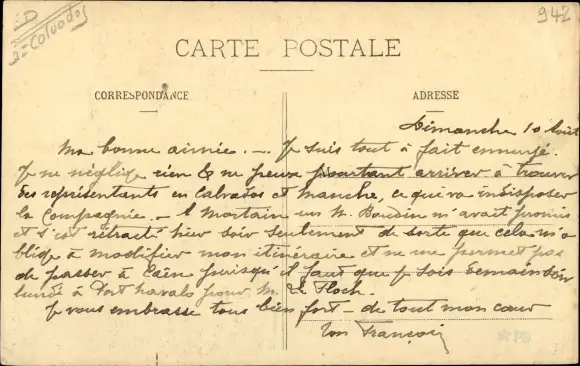 D
2= Calvados
942
CARTE POSTALE
CORRESPONDANCE
ADRESSE
Dimanche 10 Août
Ma bonne aimée. — Je suis tout à fait ennuyé.
Je ne néglige rien & ne peux pourtant arriver à trouver
des représentants en Calvados et Manche, ce qui va indisposer
la Compagnie. — A Mortain un M. Boudin m'avait promis
et s'est rétracté hier soir seulement de sorte que cela m'o
blige à modifier mon itinéraire et ne me permet pas
de passer à Caen puisqu'il faut que je sois demain soir
lundi à Port pour M. Le Floch.
Je vous embrasse tous bien fort — de tout mon cœur
Ton François